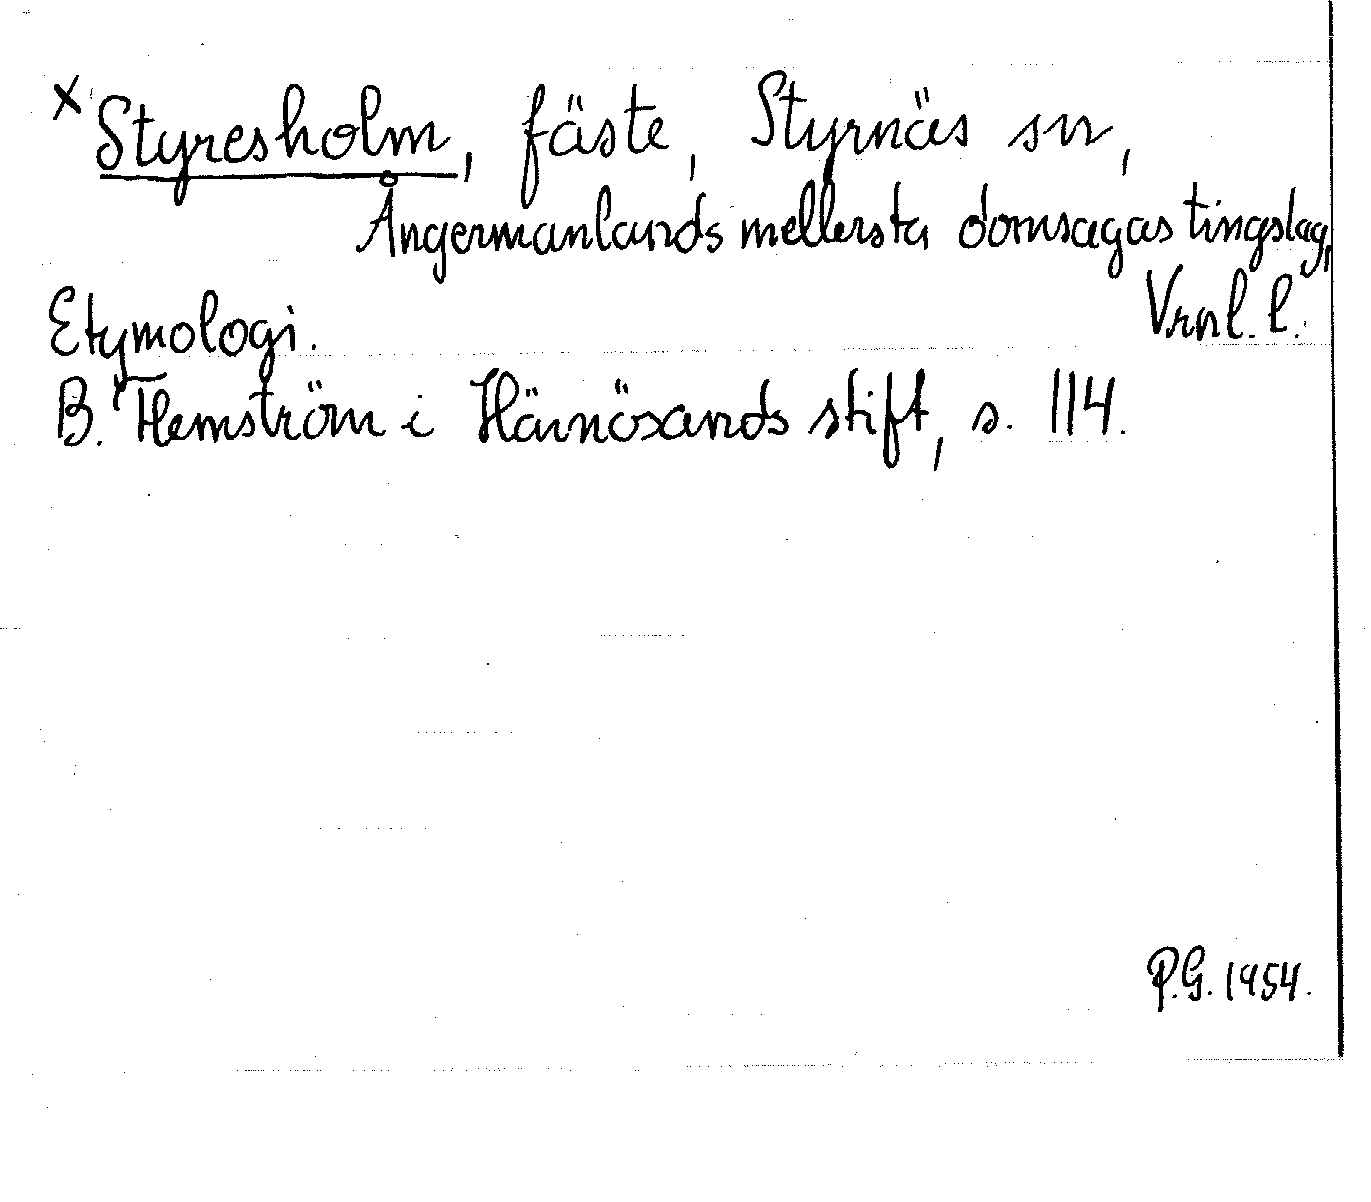 x Styresholm, fäste, Styrnäs sn,
Ångermanlands mellersta domsagas tingslag,
Vrnl. l.
Etymologi.
B. Hemström i Härnösands stift, s. 114.
P.G. 1954.